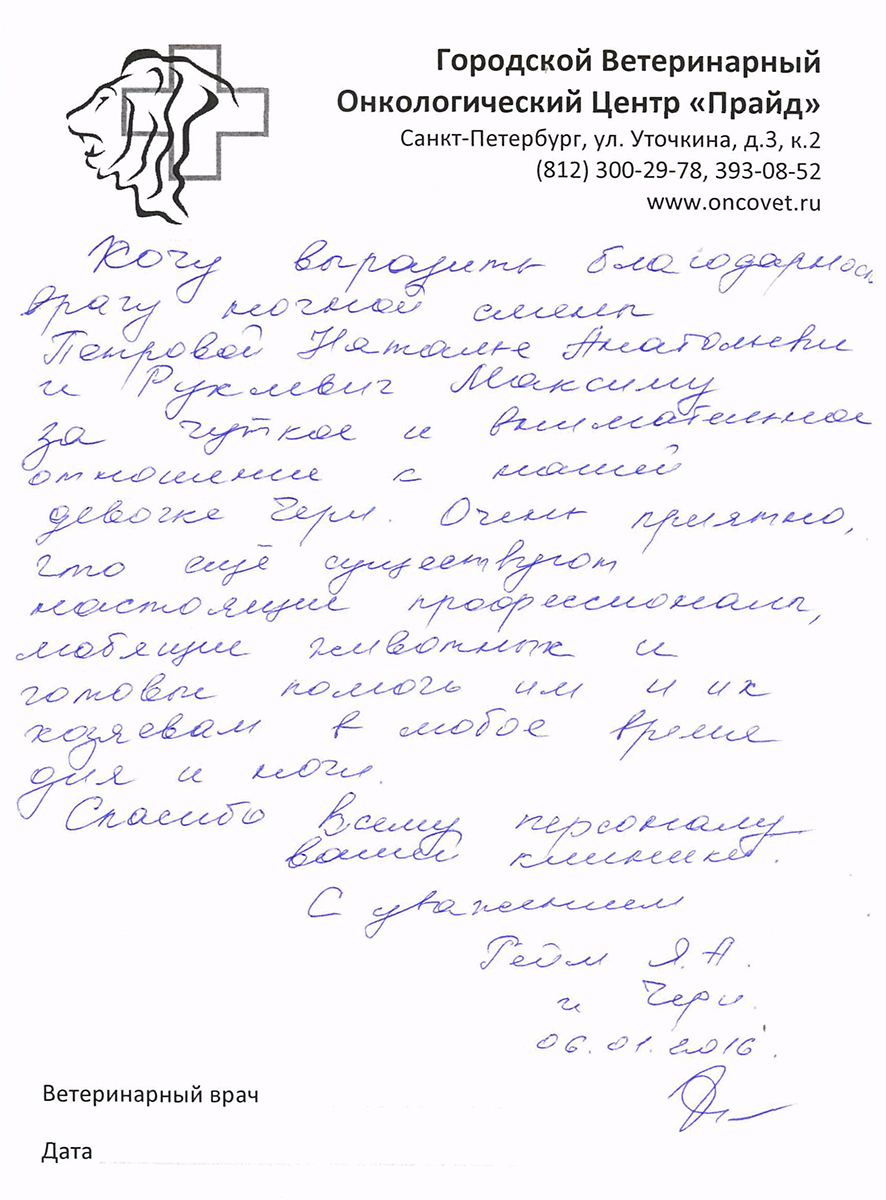 Городской Ветеринарный
Онкологический Центр «Прайд»
Санкт-Петербург, ул. Уточкина, д.3, к.2
(812) 300-29-78, 393-08-52
www.oncovet.ru
Хочу выразить благодарность
врачу ночной смены
Петровой Наталье Анатольевне
и Руклевич Максиму
за чуткое и внимательное
отношение к нашей
девочке Чери. Очень приятно,
что ещё существуют
настоящие профессионалы,
любящие животных и
готовые помочь им и их
хозяевам в любое время
дня и ночи.
Спасибо всему персоналу
вашей клиники.
С уважением
Рейм Я.А.
и Чери.
06.01.2016.
Ветеринарный врач
Дата